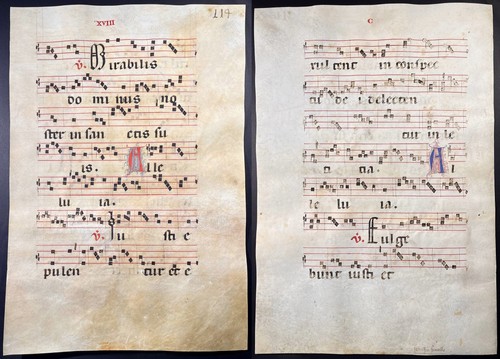 XVIII
117
℣. Mirabilis
do mi nus no
ster in san ctis su
is. Alle
lu ia.
℣. Iu sti e
pulen tur et e
C
xul tent in conspec
tu de i delecten
tur in le
ti tia. Al
le lu ia.
℣. Fulge
bunt iusti et